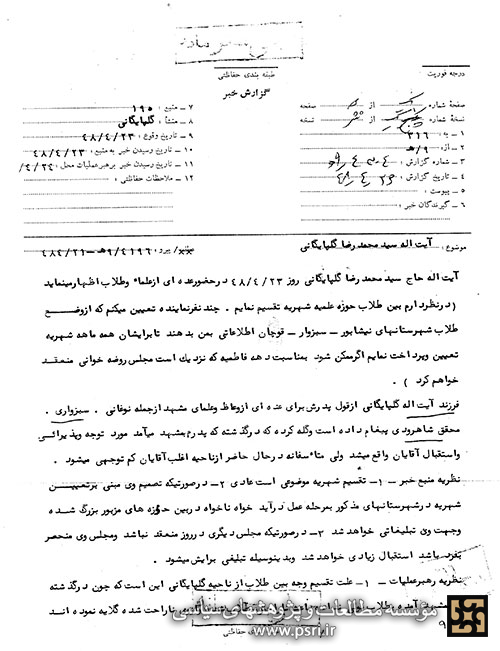 درجه فوریت
طبقه بندی حفاظتی
گزارش خبر
صفحه شماره یک از ۵ صفحه
نسخه شماره از نسخه
۱ ـ به : ۳۱۶
۲ ـ از : ۹/ه
۳ ـ شماره گزارش :
۴ ـ تاریخ گزارش :
۵ ـ پیوست :
۶ ـ گیرندگان خبر :
۷ ـ منبع : ۱۹۵
۸ ـ منشأ : گلپایگانی
۹ ـ تاریخ وقوع : ۴۸/۴/۲۳
۱۰ ـ تاریخ رسیدن خبر به منبع : ۴۸/۴/۲۳
۱۱ ـ تاریخ رسیدن خبر برهبر عملیات محل : ۴/۲۴/
۱۲ ـ ملاحظات حفاظتی :
موضوع : آیت اله سید محمد رضا گلپایگانی
پیرو : ۹/۴۱۹۶هـ ـ ۴۸/۴/۲۱
آیت اله حاج سید محمد رضا گلپایگانی روز ۴۸/۴/۲۳ در حضور عده ای از علماء و طلاب اظهار مینماید
( در نظر دارم بین طلاب حوزه علمیه شهریه تقسیم نمایم . چند نفر نماینده تعیین میکنم که از وضع
طلاب شهرستانهای نیشابور ـ سبزوار ـ قوچان اطلاعاتی بمن بدهند تا برایشان همه ماهه شهریه
تعیین و پرداخت نمایم اگر ممکن شود بمناسبت دهه فاطمیه که نزدیک است مجلس روضه خوانی منعقد
خواهم کرد ) .
فرزند آیت اله گلپایگانی از قول پدرش برای عده ای از وعاظ و علمای مشهد از جمله نوغانی . سبزواری .
محقق شاهرودی پیغام داده است و گله کرده که در گذشته که پدرم بمشهد میآمد مورد توجه و پذیرائی
و استقبال آقایان واقع میشد ولی متأسفانه در حال حاضر از ناحیه اغلب آقایان کم توجهی میشود .
نظریه منبع خبر ـ ۱ـ تقسیم شهریه موضوعی است عادی ۲ـ در صورتیکه تصمیم وی مبنی بر تعیین
شهریه در شهرستانهای مذکور بمرحله عمل در آید خواه ناخواه در بین حوزه های مزبور بزرگ شده
وجهت وی تبلیغاتی خواهد شد ۳ـ در صورتیکه مجلس دیگری در روز منعقد نباشد و مجلس وی منحصر
بفرد باشد استقبال زیادی خواهد شد و بدینوسیله تبلیغی برایش میشود .
نظریه رهبر عملیات ـ ۱ـ علت تقسیم وجه بین طلاب از ناحیه گلپایگانی این است که چون در گذشته
ناراحت شده گلایه نموده اند
مؤسسه مطالعات و پژوهشهای سیاسی
www.psri.ir